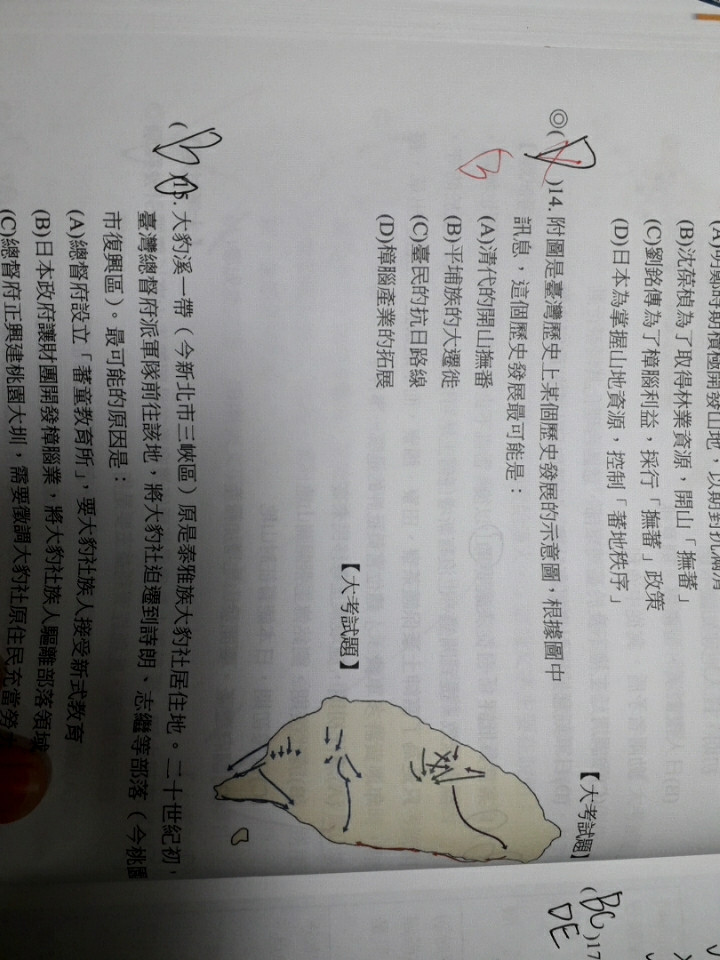 (A)明鄭時期積極開發山地，以期對抗滿清
(B)沈葆楨為了取得林業資源，開山「撫蕃」
(C)劉銘傳為了樟腦利益，採行「撫蕃」政策
(D)日本為掌握山地資源，控制「蕃地秩序」
【大考試題】
◎(D)14. 附圖是臺灣歷史上某個歷史發展的示意圖，根據圖中
B
訊息，這個歷史發展最可能是：
(A)清代的開山撫番
(B)平埔族的大遷徙
(C)臺民的抗日路線
(D)樟腦產業的拓展
【大考試題】
(B)15. 大豹溪一帶（今新北市三峽區）原是泰雅族大豹社居住地。二十世紀初，
臺灣總督府派軍隊前往該地，將大豹社迫遷到詩朗、志繼等部落（今桃園
市復興區）。最可能的原因是：
(A)總督府設立「蕃童教育所」，要大豹社族人接受新式教育
(B)日本政府讓財團開發樟腦業，將大豹社族人驅離部落領域
(C)總督府正興建桃園大圳，需要徵調大豹社原住民充當勞
(BC
DE)17